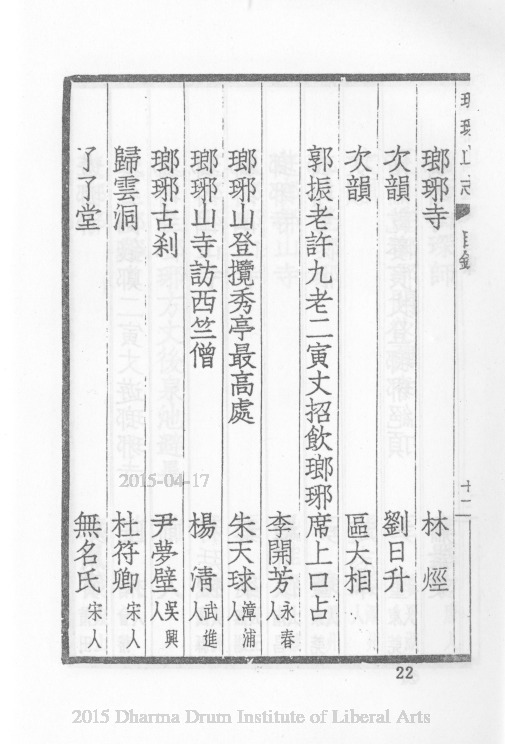 瑯琊山志 目錄 十二
瑯琊寺 林烴
次韻 劉日升
次韻 區大相
郭振老許九老二寅丈招飲瑯琊席上口占
李開芳 永春人
瑯琊山登攬秀亭最高處 朱天球 漳浦人
瑯琊山寺訪西竺僧 楊清 武進人
瑯琊古剎 尹夢璧 吳興人
歸雲洞 杜符卿 宋人
了了堂 無名氏 宋人
2015-04-17
22
2015 Dharma Drum Institute of Liberal Arts